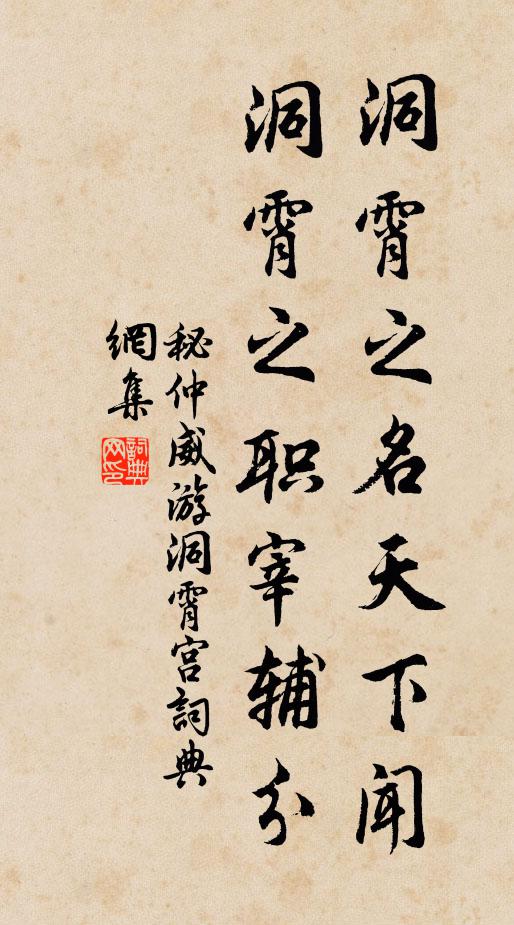 洞霄之名天下闻
洞霄之职宰辅分
秘仲威游洞霄宫詞典
網集
詞典网印